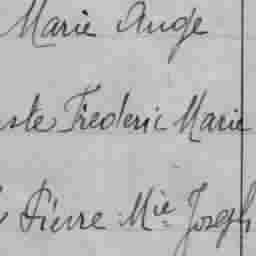 Marie Ange
ste Frederic Marie
Pierre Mie Joseph